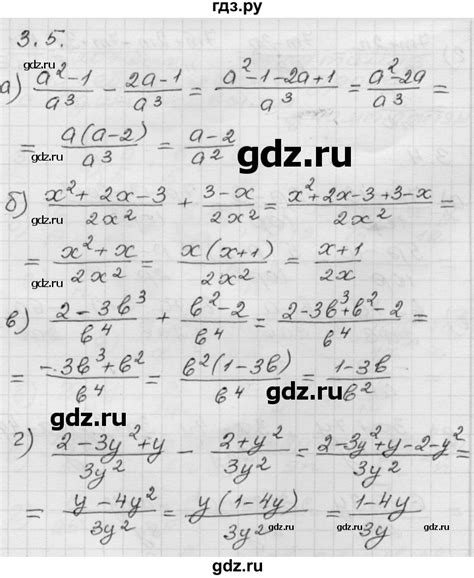 гдз.ру
3.5.
а) (a²-1)/a³ - (2a-1)/a³ = (a²-1-2a+1)/a³ = (a²-2a)/a³ =
= a(a-2)/a³ = (a-2)/a²
gdz.ru
б) (x²+2x-3)/2x² + (3-x)/2x² = (x²+2x-3+3-x)/2x² =
= (x²+x)/2x² = x(x+1)/2x² = (x+1)/2x
gdz.ru
в) (2-3b³)/b⁴ + (b²-2)/b⁴ = (2-3b³+b²-2)/b⁴ =
= (-3b³+b²)/b⁴ = b²(1-3b)/b⁴ = (1-3b)/b²
gdz.ru
г) (2-3y²+y)/3y² - (2+y²)/3y² = (2-3y²+y-2-y²)/3y² =
= (y-4y²)/3y² = y(1-4y)/3y² = (1-4y)/3y
gdz.ru